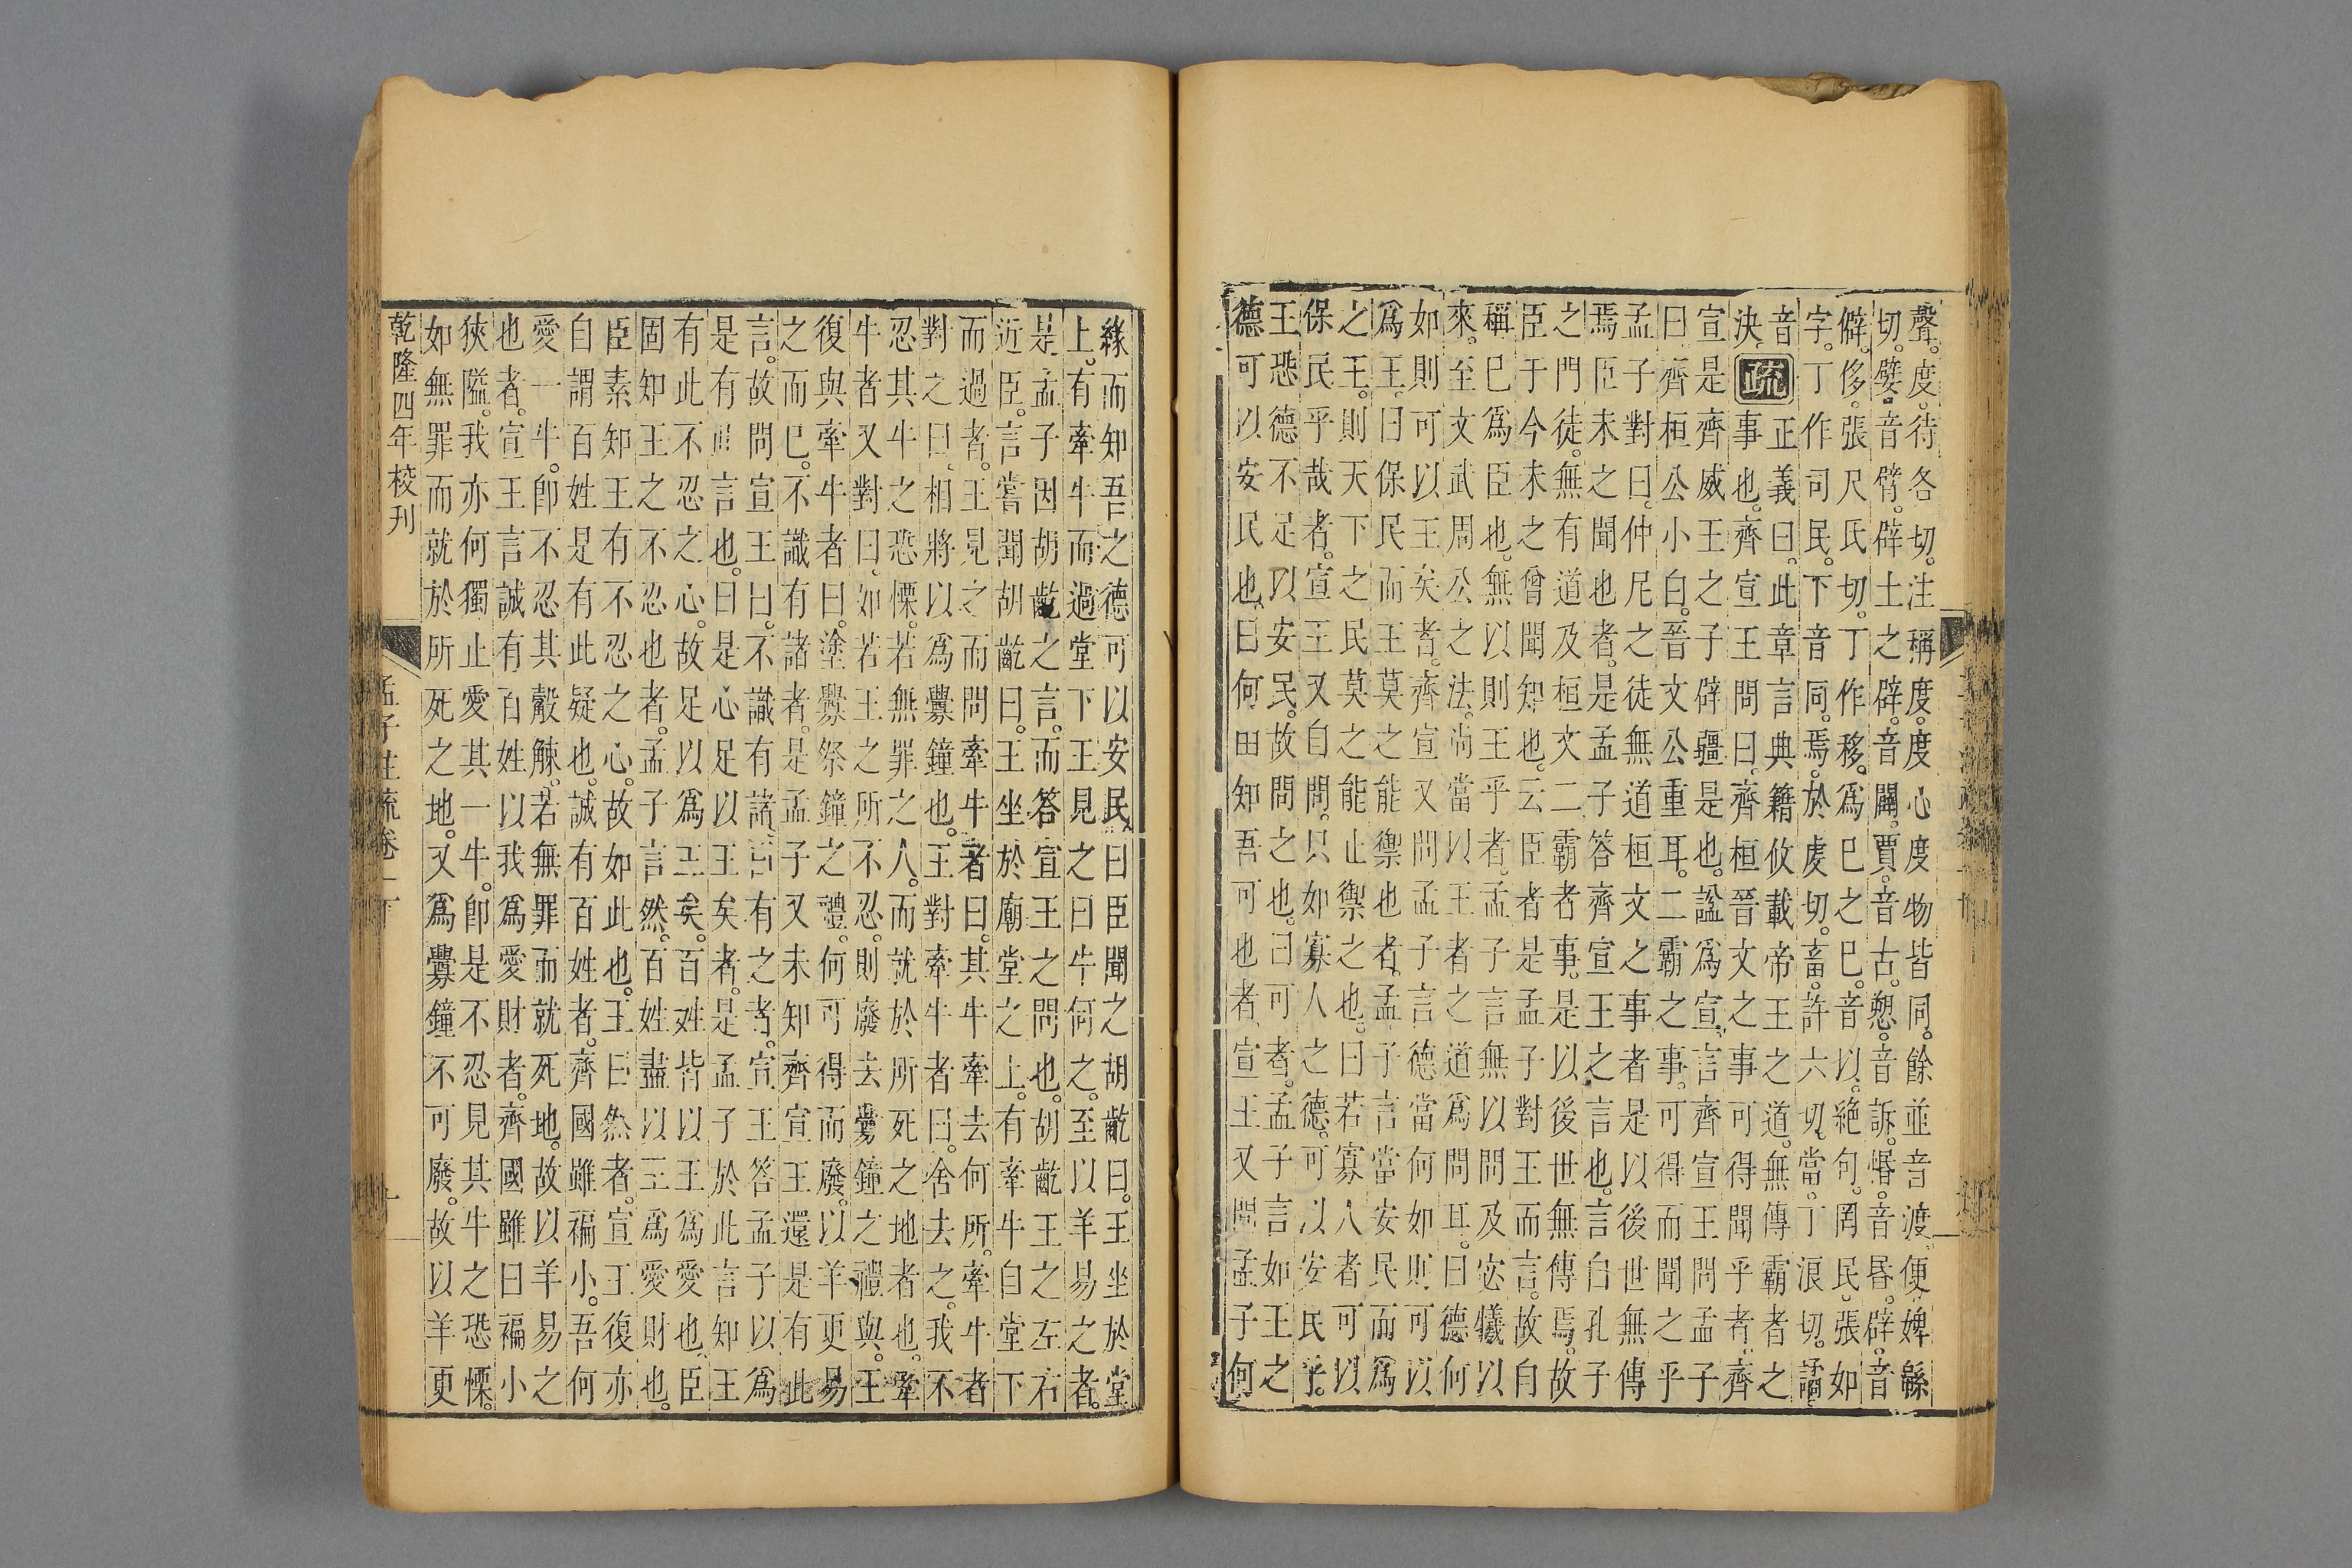 聲。度。待各切。注稱度。度心度物皆同。餘並音渡。便。婢緜
切。嬖。音臂。辟。土之辟。音闢。賈。音古。愬。音訴。惛。音昏。辟。音
僻。侈。張尺氏切。丁作移。爲巳之巳。音以。絶句。罔民。張如
字。丁作司民。下音同。焉。於虔切。畜。許六切。當。丁浪切。譎。
音決。疏正義曰。此章言典籍攸載帝王之道。無傳霸者之
事也。齊宣王問曰。齊桓晉文之事可得聞乎者。齊
宣是齊威王之子辟疆是也。諡爲宣。言齊宣王問孟子
曰齊桓公小白。晉文公重耳。二霸之事。可得而聞之乎
孟子對曰。仲尼之徒無道桓文之事者。是以後世無傳
焉。臣未之聞也者。是孟子答齊宣王之言也。言自孔子
之門徒。無有道及桓文二霸者事。是以後世無傳焉。故
臣于今未之曾聞知也。云臣者。是孟子對王而言。故自
稱巳爲臣也。無以則王乎者。孟子言無以問及宓犧以
來。至文武周公之法。尚當以王者之道爲問耳。曰德何
如則可以王矣者。齊宣又問孟子言德當何如則可以
爲王。曰保民而王莫之能禦也者。孟子言當安民而爲
之王。則天下之民莫之能止禦之也。曰若寡人者可以
保民乎哉者。宣王又自問。只如寡人之德。可以安民乎。
王恐德不足以安民。故問之也。曰可者。孟子言如王之
德可以安民也。曰何由知吾可也者。宣王又問孟子何
緣而知吾之德可以安民。曰臣聞之胡齕曰。王坐於堂
上。有牽牛而過堂下王見之曰牛何之。至以羊易之者。
是孟子因胡齕之言。而答宣王之問也。胡齕王之左右
近臣。言嘗聞胡齕曰。王坐於廟堂之上。有牽牛自堂下
而過者。王見之而問牽牛者曰。其牛牽去何所。牽牛者
對之曰。相將以爲釁鐘也。王對牽牛者曰。舍去之。我不
忍其牛之恐慄。若無罪之人。而就於所死之地者也。牽
牛者又對曰。如若王之所不忍。則廢去釁鐘之禮與。王
復與牽牛者曰。塗釁祭鐘之禮。何可得而廢。以羊更易
之而巳。不識有諸者。是孟子又未知齊宣王還是有此
言。故問宣王曰。不識有諸。曰有之者。宣王答孟子以爲
是有此言也。曰是心足以王矣者。是孟子於此言知王
有此不忍之心。故足以爲王矣。百姓皆以王爲愛也。臣
固知王之不忍也者。孟子言然。百姓盡以王爲愛財也。
臣素知王有不忍之心。故如此也。王曰然者。宣王復亦
自謂百姓是有此疑也。誠有百姓者。齊國雖褊小。吾何
愛一牛。卽不忍其觳觫。若無罪而就死地。故以羊易之
也者。宣王言誠有百姓以我爲愛財者。齊國雖曰褊小
狹隘。我亦何獨止愛其一牛。卽是不忍見其牛之恐慄。
如無罪而就於所死之地。又爲釁鐘不可廢。故以羊更
乾隆四年校刊
孟子注疏卷一下